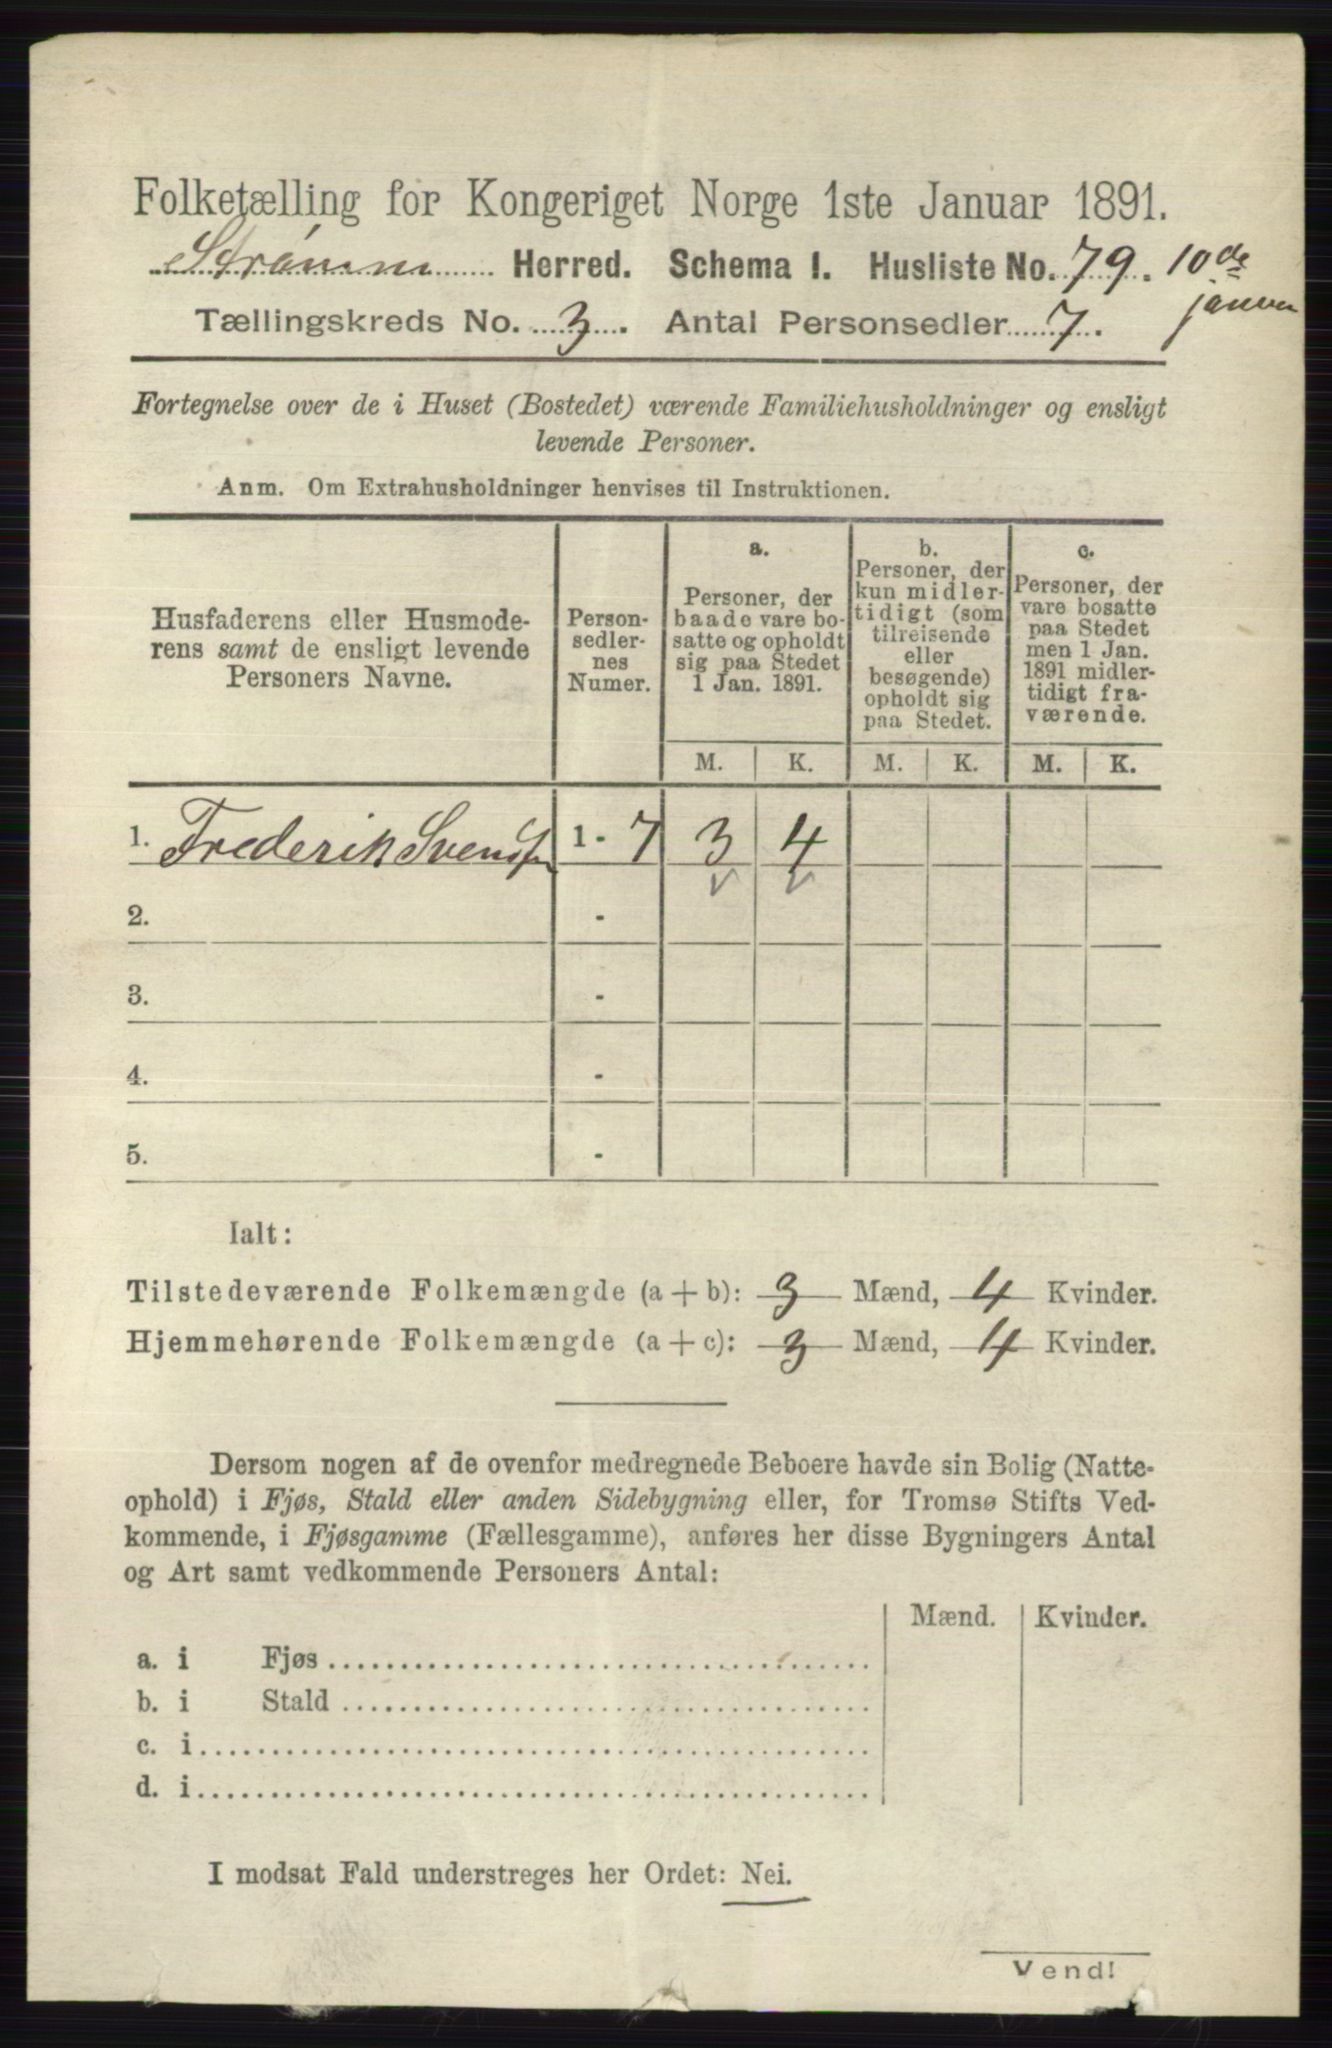 Folketælling for Kongeriget Norge 1ste Januar 1891.
Strømm Herred. Schema I. Husliste No. 79. 10de
januar
Tællingskreds No. 3. Antal Personsedler 7.
Fortegnelse over de i Huset (Bostedet) værende Familiehusholdninger og ensligt
levende Personer.
Anm. Om Extrahusholdninger henvises til Instruktionen.
Husfaderens eller Husmode-
rens samt de ensligt levende
Personers Navne.
Person-
sedler-
nes
Numer.
a.
Personer, der
baade vare bo-
satte og opholdt
sig paa Stedet
1 Jan. 1891.
b.
Personer, der
kun midler-
tidigt (som
tilreisende
eller
besøgende)
opholdt sig
paa Stedet.
c.
Personer, der
vare bosatte
paa Stedet
men 1 Jan.
1891 midler-
tidigt fra-
værende.
M. K. M. K. M. K.
1. Frederik Svendsen 1 - 7 3 4
2. -
3. -
4. -
5. -
Ialt:
Tilstedeværende Folkemængde (a + b): 3 Mænd, 4 Kvinder.
Hjemmehørende Folkemængde (a + c): 3 Mænd, 4 Kvinder.
Dersom nogen af de ovenfor medregnede Beboere havde sin Bolig (Natte-
ophold) i Fjøs, Stald eller anden Sidebygning eller, for Tromsø Stifts Ved-
kommende, i Fjøsgamme (Fællesgamme), anføres her disse Bygningers Antal
og Art samt vedkommende Personers Antal:
Mænd. Kvinder.
a. i Fjøs
b. i Stald
c. i
d. i
I modsat Fald understreges her Ordet: Nei.
Vend!